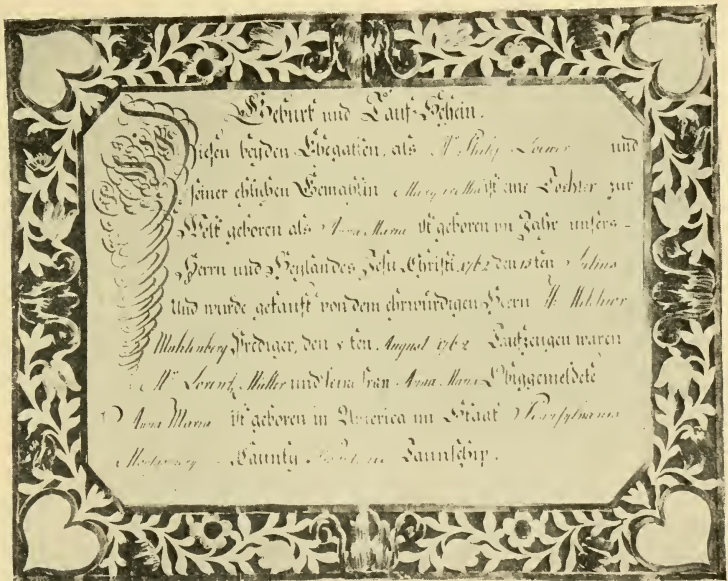 Geburt und Tauf-Schein.
Diesen beyden Ehegatten, als Mr Philip und
seiner ehlichen Gemahlin ist eine Tochter zur
Welt geboren als Anna Maria ist geboren im Jahr unsers-
Herrn und Heylandes Jesu Christi 1762 den 15ten Julius
Und wurde getauft von dem ehrwürdigen Herrn H. Melchior
Muhlenberg Prediger, den 8ten August 1762 Taufzeugen waren
Mr Lorentz Muller und seine Fran Anna Maria Obiggemeldete
Anna Maria ist geboren in America im Staat Pensylvania
Montgomery Caunty Taunschip.